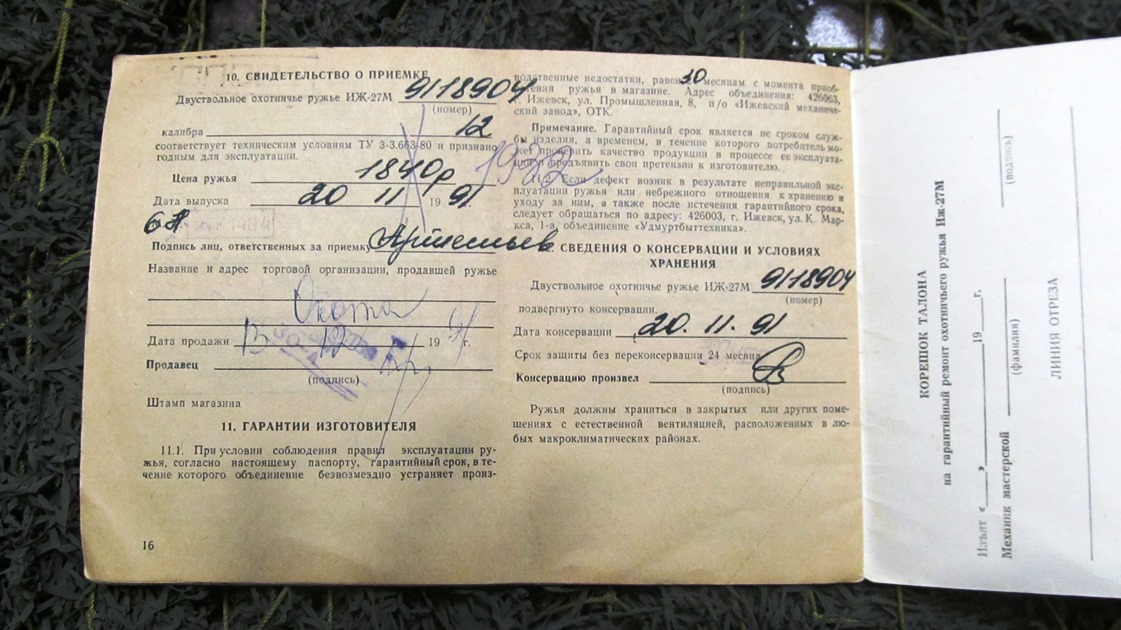 10. СВИДЕТЕЛЬСТВО О ПРИЕМКЕ
Двуствольное охотничье ружье ИЖ-27М 9118904
(номер)
калибра 12
соответствует техническим условиям ТУ 3-3.663-80 и признано
годным для эксплуатации.
Цена ружья 1840р 1922
Дата выпуска 20 11 19 91
Подпись лиц, ответственных за приемку
Название и адрес торговой организации, продавшей ружье
Охота
Дата продажи 13 12 19 91 г.
Продавец
(подпись)
Штамп магазина
11. ГАРАНТИИ ИЗГОТОВИТЕЛЯ
11.1. При условии соблюдения правил эксплуатации ру-
жья, согласно настоящему паспорту, гарантийный срок, в те-
чение которого объединение безвозмездно устраняет произ-
16
водственные недостатки, равен 30 месяцам с момента приоб-
ретения ружья в магазине. Адрес объединения: 426063,
г. Ижевск, ул. Промышленная, 8, п/о «Ижевский механиче-
ский завод», ОТК.
Примечание. Гарантийный срок является не сроком служ-
бы изделия, а временем, в течение которого потребитель мо-
жет проверить качество продукции в процессе ее эксплуата-
ции и предъявить свои претензии к изготовителю.
11.2. Если дефект возник в результате неправильной экс-
плуатации ружья или небрежного отношения к хранению и
уходу за ним, а также после истечения гарантийного срока,
следует обращаться по адресу: 426003, г. Ижевск, ул. К. Мар-
кса, 1-а, объединение «Удмуртбыттехника».
СВЕДЕНИЯ О КОНСЕРВАЦИИ И УСЛОВИЯХ
ХРАНЕНИЯ
Двуствольное охотничье ружье ИЖ-27М 9118904
(номер)
подвергнуто консервации.
Дата консервации 20. 11. 91
Срок защиты без переконсервации 24 месяца
Консервацию произвел
(подпись)
Ружья должны храниться в закрытых или других поме-
щениях с естественной вентиляцией, расположенных в лю-
бых макроклиматических районах.
КОРЕШОК ТАЛОНА
на гарантийный ремонт охотничьего ружья Иж-27М
Изъят « » 19 г.
Механик мастерской
(фамилия)
(подпись)
ЛИНИЯ ОТРЕЗА